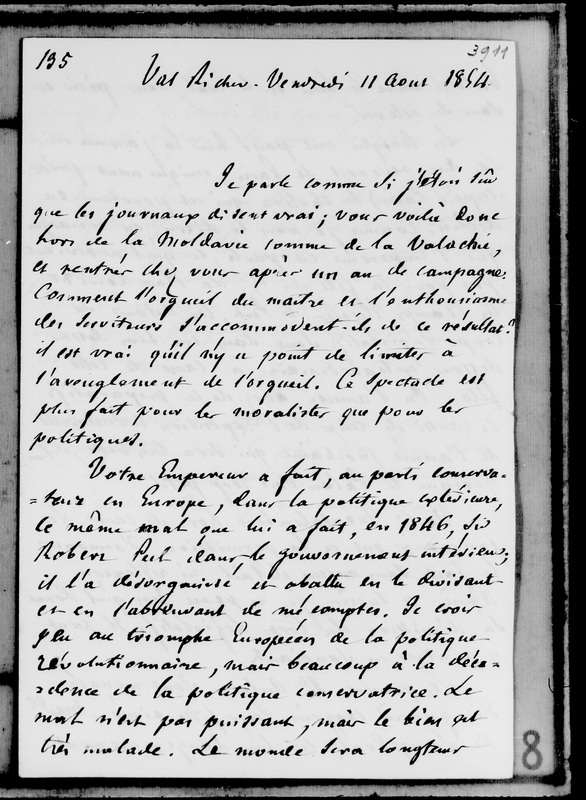 135
3911
Val Richer. Vendredi 11 Aout 1854
Je parle comme si j'étois sûr
que les journaux disent vrai; vous voilà donc
hors de la Moldavie comme de la Valachie,
et rentrés chez vous après un an de campagne.
Comment l'orgueil du maitre et l'enthousiasme
des serviteurs s'accommodent-ils de ce résultat?
il est vrai qu'il n'y a point de limites à
l'aveuglement de l'orgueil. Ce spectacle est
plus fait pour les moralistes que pour les
politiques.
Votre Empereur a fait, au parti conserva-
=teur en Europe, dans la politique extérieure,
le même mal que lui a fait, en 1846, Sir
Robert Peel dans le gouvernement intérieur;
il l'a désorganisé et abattu en le divisant
et en l'abreuvant de mécomptes. Je crois
peu au triomphe Européen de la politique
révolutionnaire, mais beaucoup à la déca-
=dence de la politique conservatrice. Le
mal n'est pas puissant, mais le bien est
très malade. Le monde sera longtems
8